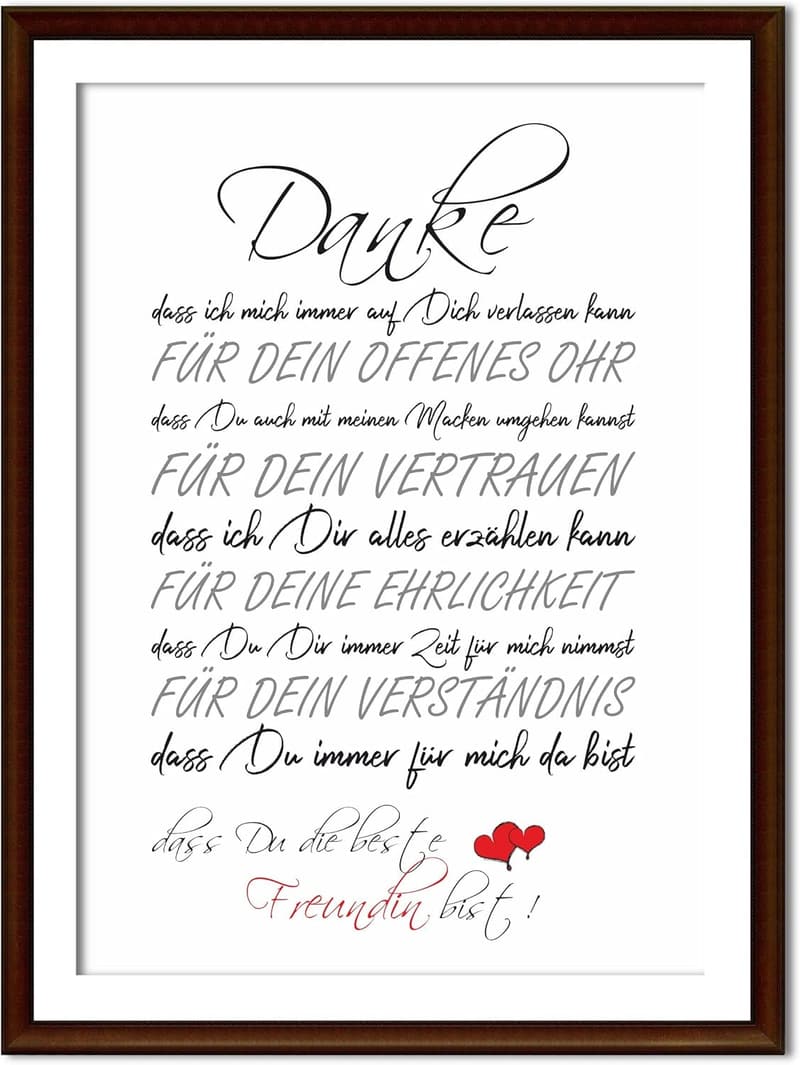 Danke
dass ich mich immer auf Dich verlassen kann
FÜR DEIN OFFENES OHR
dass Du auch mit meinen Macken umgehen kannst
FÜR DEIN VERTRAUEN
dass ich Dir alles erzählen kann
FÜR DEINE EHRLICHKEIT
dass Du Dir immer Zeit für mich nimmst
FÜR DEIN VERSTÄNDNIS
dass Du immer für mich da bist
dass Du die beste
Freundin bist !